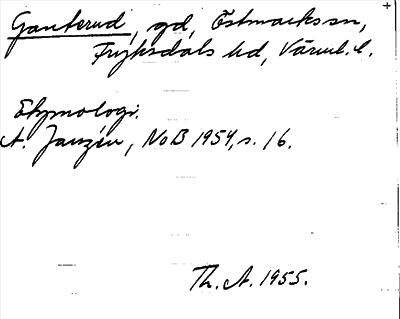 Ganterud, gd, Östmarks sn,
Fryksdals hd, Värml. l.
Etymologi.
A. Janzén, NoB 1954, s. 16.
Th. A. 1955.